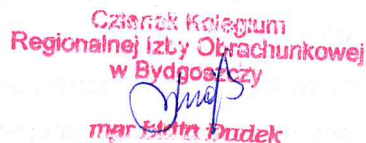 Członek Kolegium
Regionalnej Izby Obrachunkowej
w Bydgoszczy
mgr Dudek